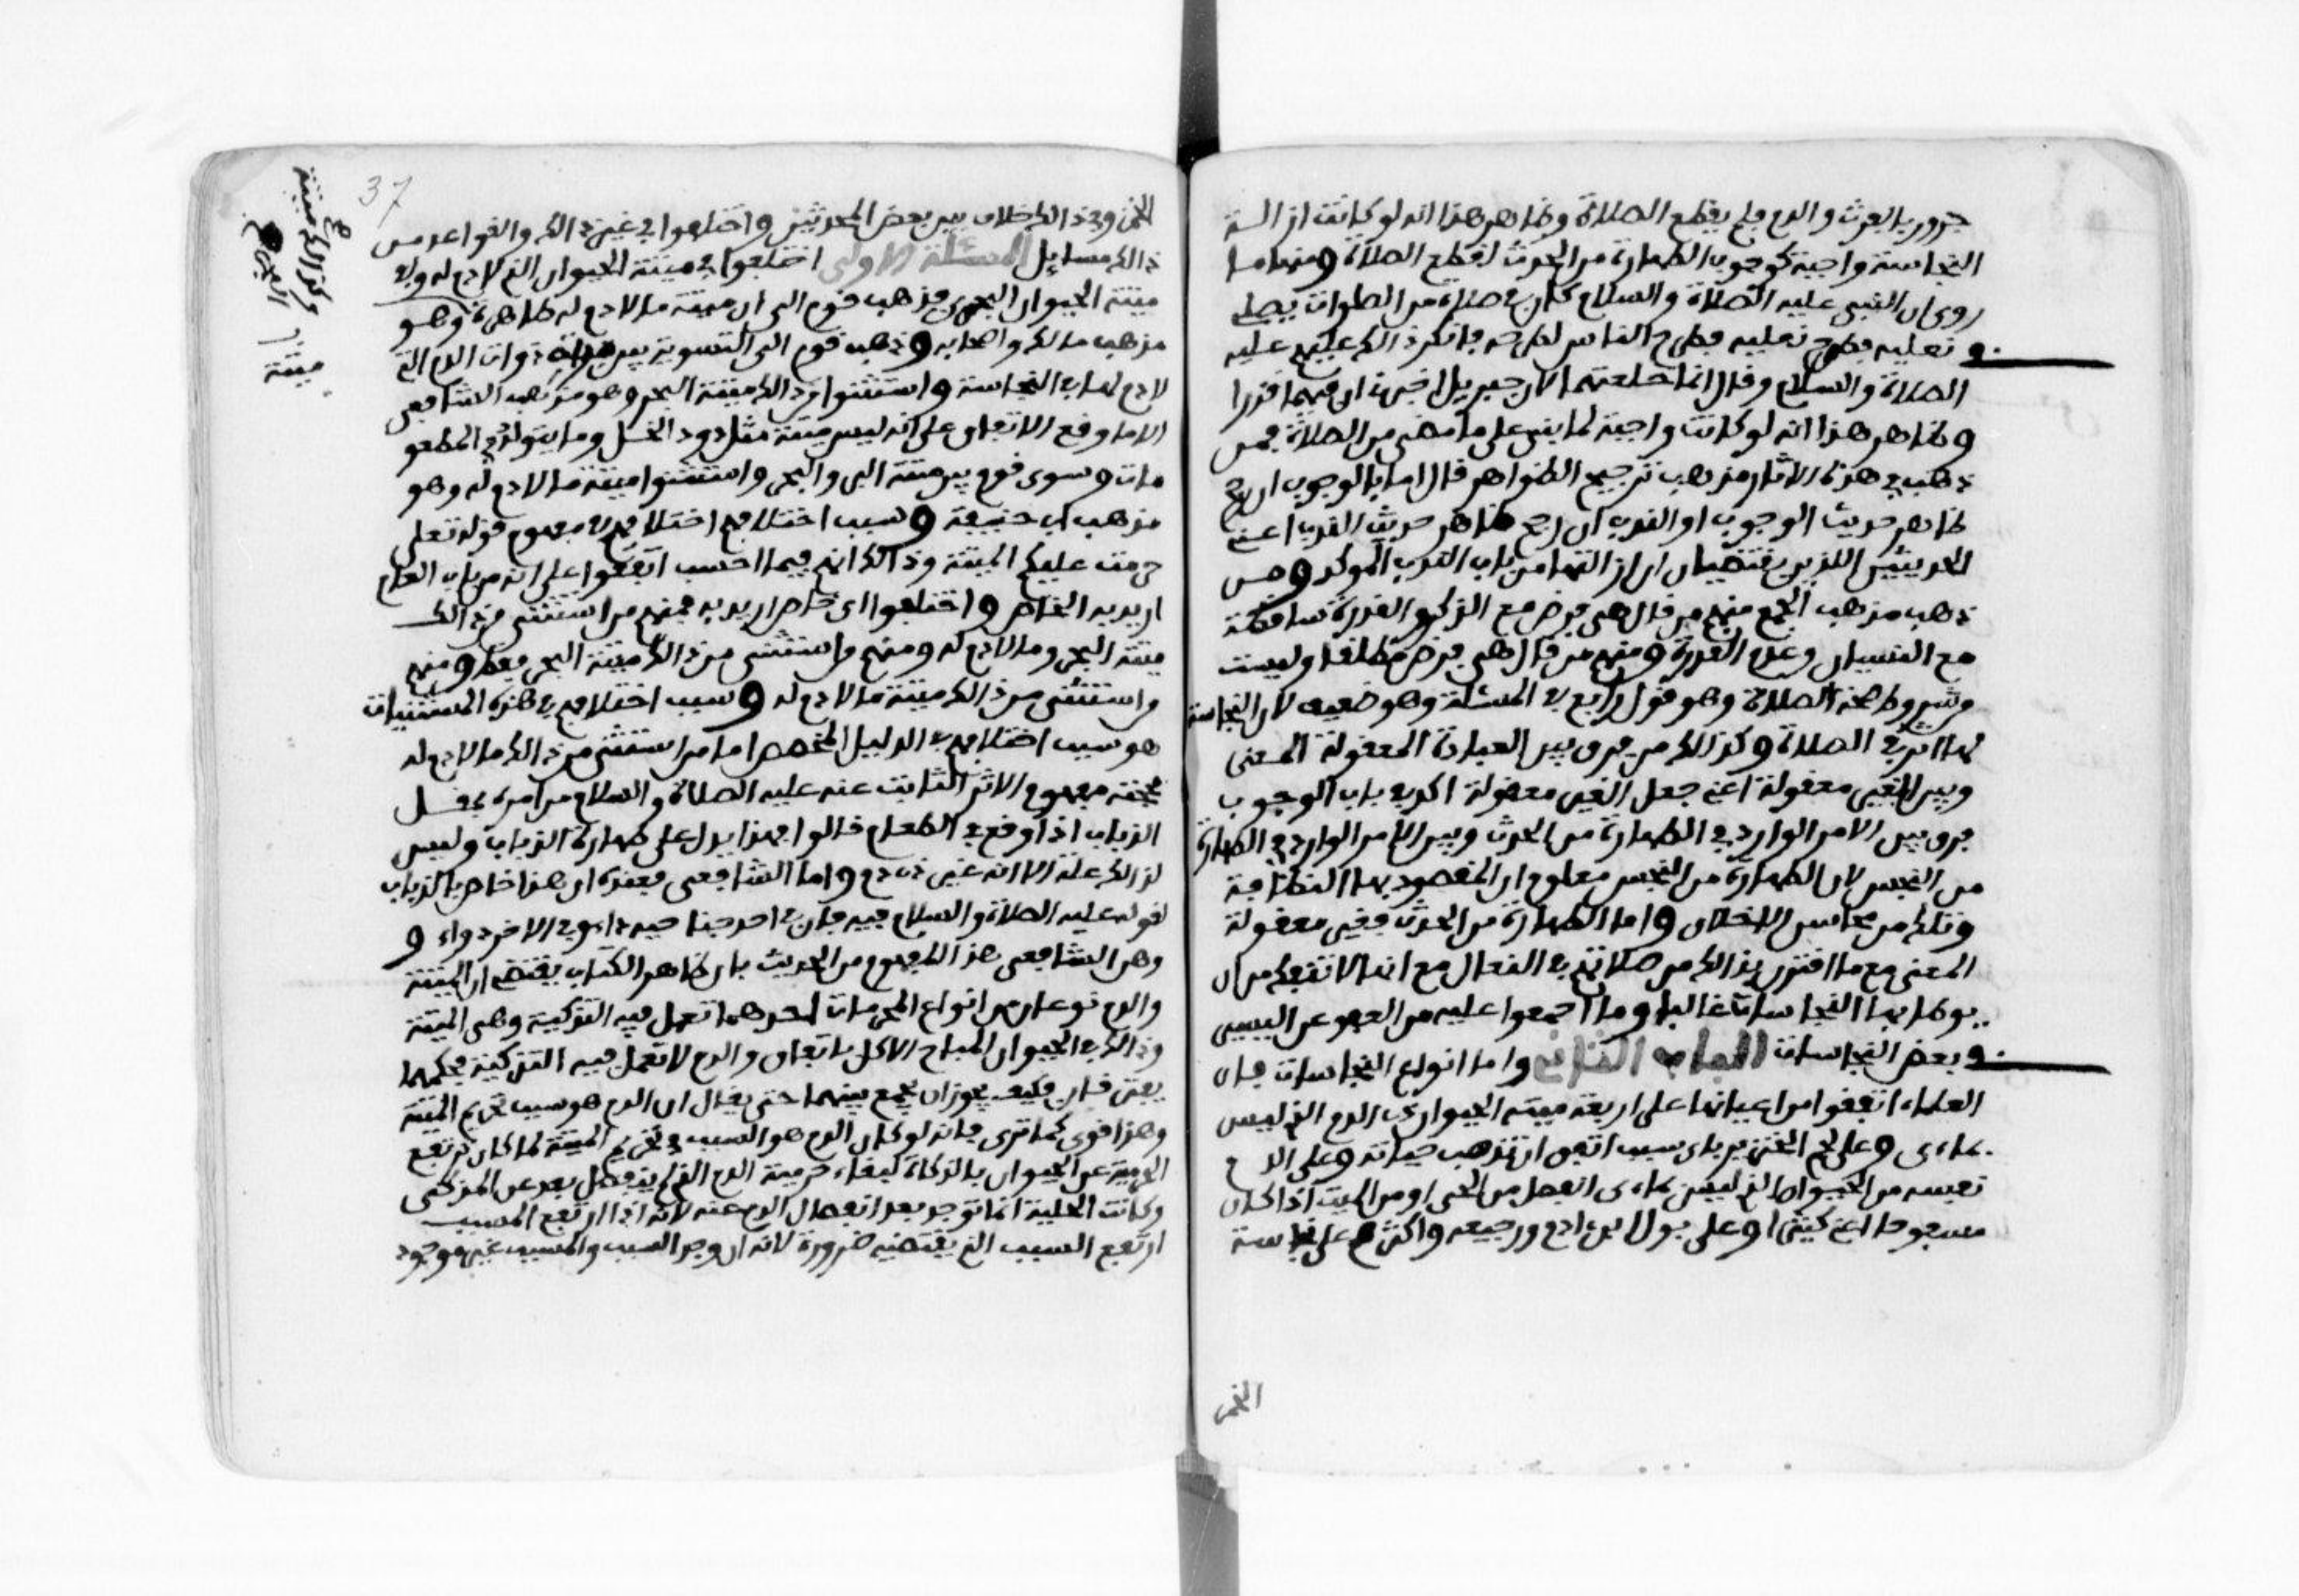 جزور بالفرث والدم فلم يقطع الصلاة وظاهر هذا انه لو كانت ازالة
النجاسة واجبة كوجوب الطهارة من الحدث لقطع الصلاة ومنها ما
روى ان النبي عليه الصلاة والسلام كان في صلاة من الصلوات يصلي
في نعليه فطرح نعليه فطرح الناس لطرحه فانكر ذالك عليهم عليه
الصلاة والسلام وقال انما خلعتهما لان جبريل اخبرني ان فيهما قذرا
وظاهر هذا انه لو كانت واجبة لما بنى على ما مضى من الصلاة فمن
ذهب في هذه الاثار مذهب ترجيح الظواهر قال اما بالوجوب ان رجح
ظاهر حديث الوجوب او الندب ان رجح ظاهر حديث الندب اعني
الحديثين اللذين يقتضيان ان ازالتها من باب الندب الموكد ومن
ذهب مذهب الجمع منهم من قال هي فرض مع الذكر والقدرة ساقطة
مع النسيان وعدم القدرة ومنهم من قال هي فرض مطلقا وليست
من شروط صحة الصلاة وهو قول رابع في المسئلة وهو ضعيف لان النجاسة
انما تزال في الصلاة وكذالك من فرق بين العبادة المعقولة المعنى
وبين الغير معقولة اعني جعل الغير معقولة اكد في باب الوجوب
فرق بين الامر الوارد في الطهارة من الحدث وبين الامر الوارد في الطهارة
من النجس لان الطهارة من النجس معلوم ان المقصود بها النظافة
وذلك من محاسن الاخلاق واما الطهارة من الحدث فغير معقولة
المعنى مع ما اقترن بذالك من صلاتهم في النعال مع انها لا تنفك من ان
يوطا بها النجاسات غالبا وما اجمعوا عليه من العفو عن اليسير
في بعض النجاسات الباب الثاني واما انواع النجاسات فان
العلماء اتفقوا من اعيانها على اربعة ميتة الحيوان ذي الدم الذي ليس
بماءي وعلى لحم الخنزير باي سبب اتفق ان تذهب حياته وعلى الدم
نفسه من الحيوان الذي ليس بماءي انفصل من الحي او من الميت اذا كان
مسفوحا اعني كثيرا وعلى بول ابن ادم ورجيعه واكثرهم على نجاسة
الخمر
37
الخمر وفي ذالك خلاف بين بعض المحدثين واختلفوا في غير ذالك والقواعد من
ذالك مسايل المسئلة الاولى اختلفوا في ميتة الحيوان الذي لا دم له وفي
ميتة الحيوان البحري فذهب قوم الى ان ميتة ما لا دم له طاهرة وهو
مذهب مالك واصحابه وذهب قوم الى التسوية بين ميتة ذوات الدم التي
لا دم لها في النجاسة واستثنوا من ذالك ميتة البحر وهو مذهب الشافعي
الا ما وقع الاتفاق على انه ليس ميتة مثل دود الخل وما يتولد في المطعو
مات وسوى قوم بين ميتة البر والبحر واستثنوا ميتة ما لا دم له وهو
مذهب ابي حنيفة وسبب اختلافهم اختلافهم في مفهوم قوله تعلى
حرمت عليكم الميتة وذالك انهم فيما احسب اتفقوا على انه من باب العام
اريد به الخاص واختلفوا اي خاص اريد به فمنهم من استثنى من ذالك
ميتة البحر وما لا دم له ومنهم من استثنى من ذالك ميتة البحر فقط ومنهم
من استثنى من ذالك ميتة ما لا دم له وسبب اختلافهم في هذه المستثنيات
هو سبب اختلافهم في الدليل المخصص اما من استثنى من ذالك ما لا دم له
فحجته مفهوم الاثر الثابت عنه عليه الصلاة والسلام من امره بمقل
الذباب اذا وقع في الطعام قالوا فهذا يدل على طهارة الذباب وليس
لذالك علة الا انه غير ذي دم واما الشافعي فعنده ان هذا خاص بالذباب
لقوله عليه الصلاة والسلام فيه فان في احد جناحيه داء وفي الاخر دواء و
وهن الشافعي هذا المفهوم من الحديث بان ظاهر الكتاب يقتضي ان الميتة
والدم نوعان من انواع المحرمات احدهما تعمل فيه التزكية وهي الميتة
وذالك في الحيوان المباح الاكل باتفاق والدم لا تعمل فيه التزكية فحكمهما
يفترقان فكيف يجوز ان يجمع بينهما حتى يقال ان الدم هو سبب تحريم الميتة
وهذا قوي كما ترى فانه لو كان الدم هو السبب في تحريم الميتة لما كان ترتفع
الحرمية عن الحيوان بالذكاة كبقاء حرمية الدم الذي لم ينفصل بعد عن المذكى
وكانت الحلية انما توجد بعد انفصال الدم عنه لانه اذا ارتفع المسبب
ارتفع السبب الذي يقتضيه ضرورة لانه ان وجد السبب والمسبب غير موجود
وكذالك ميتة
البحري
ميتة